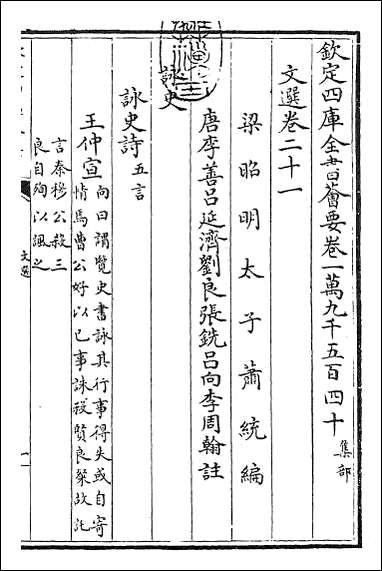 欽定四庫全書薈要卷一萬九千五百四十 集部
文選卷二十一
梁昭明太子蕭統編
唐李善呂延濟劉良張銑呂向李周翰註
詠史
詠史詩五言
王仲宣向曰謂覽史書詠其行事得失或自寄
情焉曹公好以己事誅殺賢良粲故託
言秦穆公殺三
良自殉以諷之
文選